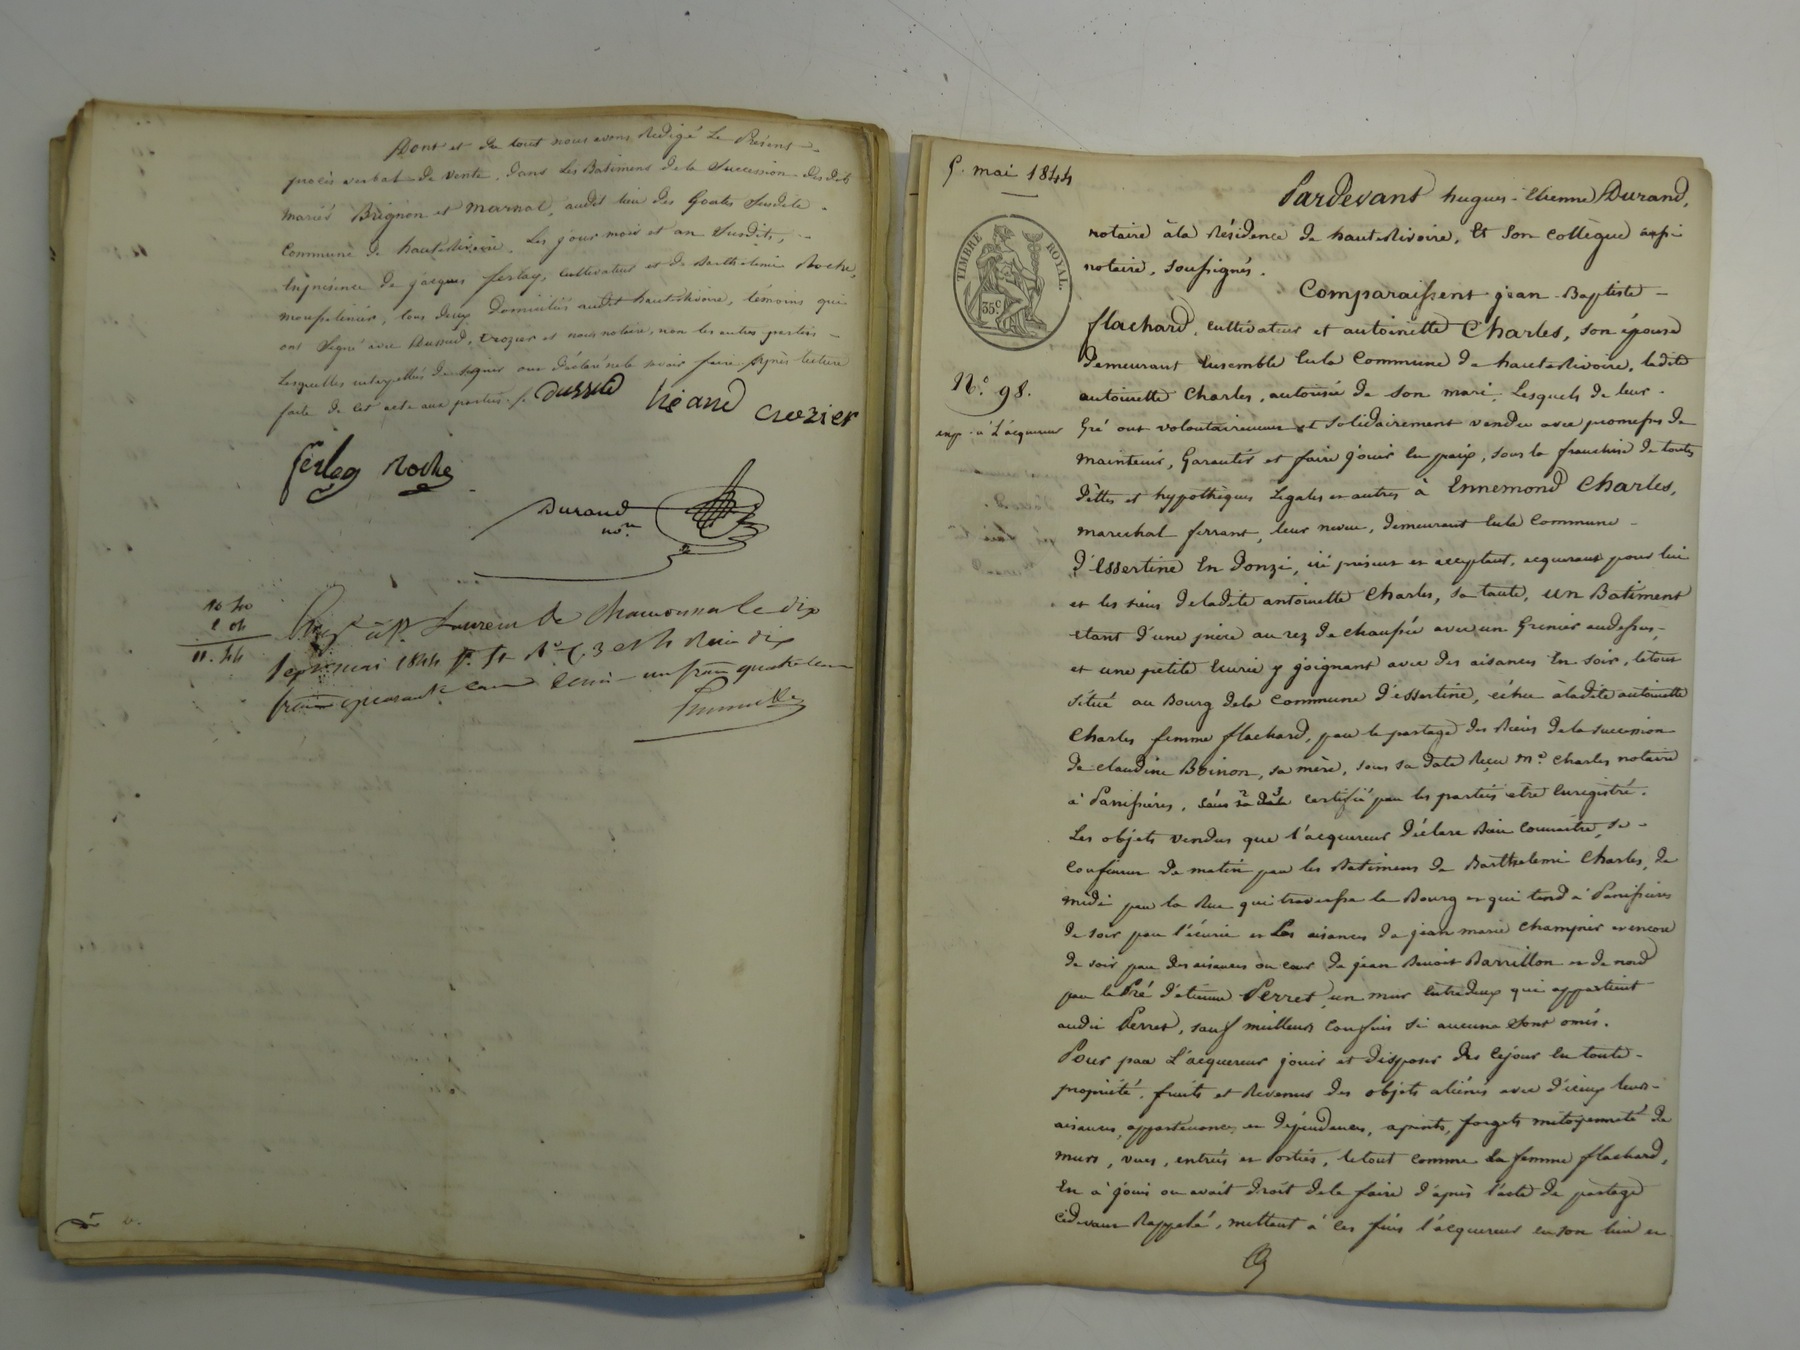 Dont et du tout nous avons Redigé Le Présent
procès verbal de vente, Dans Les Batimens de la Succession desdits
mariés Brignon et marnat, audit lieu des Goates Susdite
Commune de hauterivoire, Les jour mois et an Susdits,
En présence de jacques ferlay, cultivateur et de Barthelemi Roche,
tous deux Domiciliés audit hauterivoire, témoins qui
ont Signé avec Dussud, Crozier et nous notaire, non les autres parties
Lesquelles interpellées de signer ont déclaré ne le savoir faire. Après lecture
faite de cet acte aux parties ./.
Dussud
crozier
ferlay Roche
Durand
no.re
10 40
1 04
11.44
Enr.é à St. Laurent de Chamousset le dix
sept mai 1844 f.o 51 R.o C. 3 et 4 Reçu dix
francs quarante cent Decime un franc quatre cent
5. mai 1844
Pardevant hugues-Etienne Durand,
notaire à la Résidence de hauterivoire, Et Son Collègue aussi
notaire, soussignés.
TIMBRE ROYAL.
35.c
Comparaissent jean-Baptiste
flachard, cultivateur et antoinette Charles, son épouse
demeurant Ensemble En la Commune de hauterivoire, ladite
N.o 98.
antoinette Charles, autorisée de son mari, Lesquels de leur
exp. à l'acquereur
Gré ont volontairement et Solidairement vendu avec promesses de
maintenir, Garantir et faire jouir En paix, sous la franchise de toutes
dettes et hypothèques Légales et autres à Ennemond Charles,
marechal ferrant, leur neveu, demeurant En la Commune
d'Essertine En Donzi, ici présent et acceptant, acquerant pour lui
et les siens de ladite antoinette Charles, sa tante, un Batiment
étant d'une pièce au rez de chaussée avec un Grenier audessus,
et une petite Ecurie y joignant avec des aisances En soir, le tout
situé au Bourg de la Commune d'essertine, échu à ladite antoinette
Charles femme flachard, par le partage des Biens de la succession
de claudine Boinon, sa mère, sous sa date Reçu M.e Charles notaire
à Panissières, certifié par les parties etre Enregistré.
Les objets vendus que l'acquereur déclare Bien connaitre, se
confinent de matin par les Batimens de Barthelemi Charles, de
midi par la Rue qui traverse le Bourg et qui tend à Panissières
de soir par l'écurie et Les aisances de jean marie Champier et encore
de soir par des aisances ou cour de jean Benoit Barrillon et de nord
par le Pré d'étienne Perret un mur Entredeux qui appartient
audit Perret, sauf meilleurs confins si aucuns sont omis.
Pour par L'acquereur jouir et disposer dès cejour En toute
propriété, fruits et Revenus des objets aliénés avec d'iceux leurs
aisances, appartenances et dépendances, forgets mitoyenneté de
murs, vues, entrées et sorties, le tout comme La femme flachard,
En a joui ou avait droit de le faire d'après l'acte de partage
cidevant Rappelé, mettant à ces fins l'acquereur en son lieu et